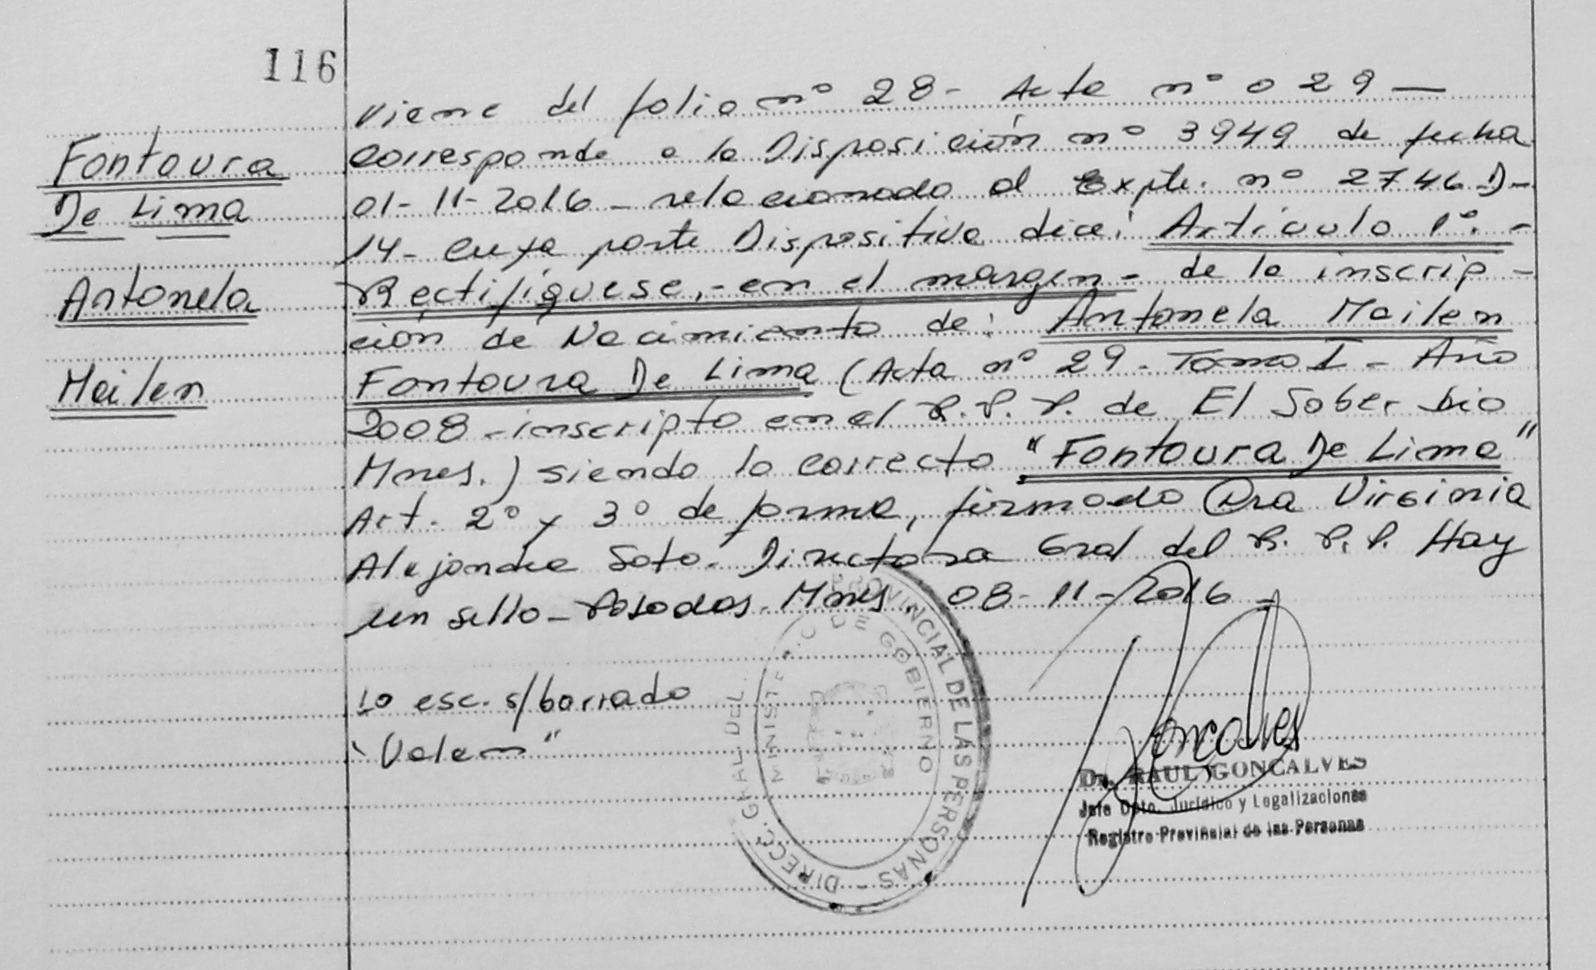 116
Fontoura
De Lima
Antonela
Mailen
Viene del folio nº 28 - Acta nº 029 —
Corresponde a la Disposición nº 3949 de fecha
01-11-2016 - relacionado al Expte. nº 2746-D-
14- cuya parte Dispositiva dice: Artículo 1º.-
Rectifíquese, - en el margen - de la inscrip-
ción de Nacimiento de: Antonela Mailen
Fontoura De Lima (Acta nº 29 - Tomo I - Año
2008 - inscripto en el R.P.P. de El Soberbio
Mnes.) siendo lo correcto "Fontoura De Lima"
Art. 2º y 3º de forma, firmado Dra Virginia
Alejandra Soto. Directora Gral del R.P.P. Hay
un sello - Posadas. Mnes, 08-11-2016 -
Lo esc. s/borrado
"Valen"
DIRECC. GRAL. DEL PROVINCIAL DE LAS PERSONAS
MINISTERIO DE GOBIERNO
Goncalves
Dr. RAUL GONCALVES
Jefe Dpto. Jurídico y Legalizaciones
Registro Provincial de las Personas